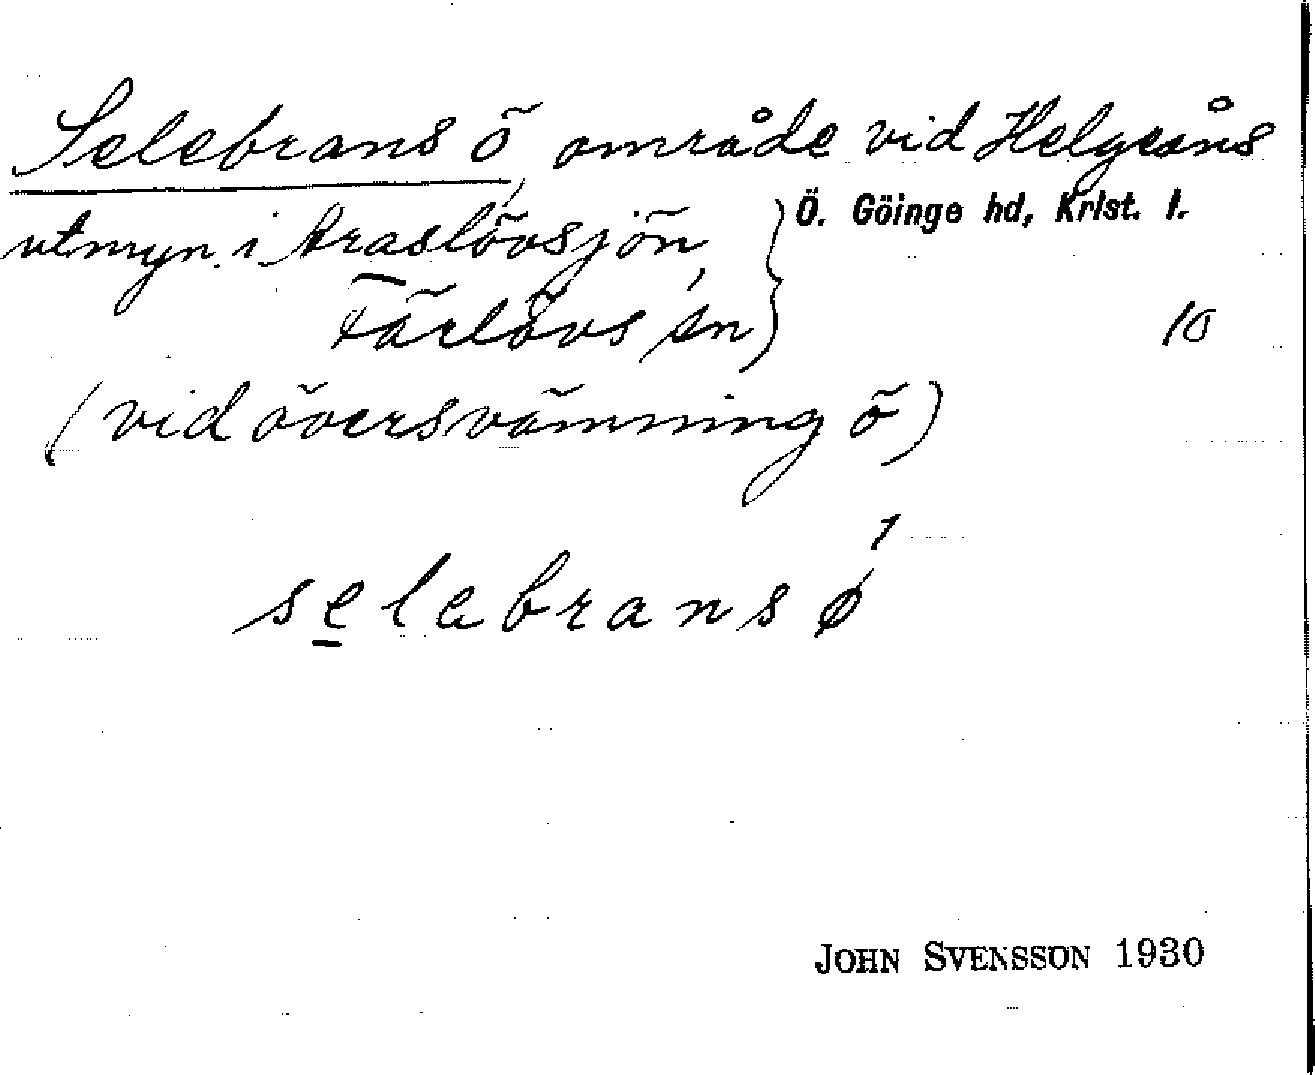 Selebrans ö, område vid Helgeåns
utmyn. i Araslövsjön, } Ö. Göinge hd, Krist. l.
Färlövs sn 10
(vid översvämning ö)
selebransø 1
JOHN SVENSSON 1930